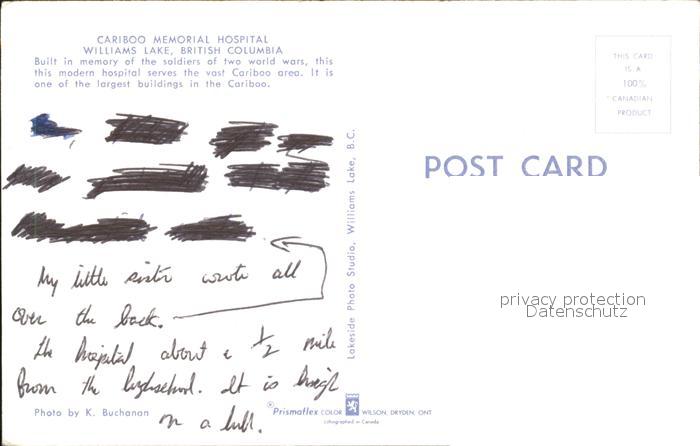 CARIBOO MEMORIAL HOSPITAL
WILLIAMS LAKE, BRITISH COLUMBIA
Built in memory of the soldiers of two world wars, this
this modern hospital serves the vast Cariboo area. It is
one of the largest buildings in the Cariboo.
My little sister wrote all
over the back.
the hospital about a 1/2 mile
from the highschool. It is
on a hill.
Photo by K. Buchanan
Prismaflex COLOR WILSON, DRYDEN, ONT
Lithographed in Canada
Lakeside Photo Studio, Williams Lake, B.C.
THIS CARD
IS A
100%
CANADIAN
PRODUCT
POST CARD
privacy protection
Datenschutz